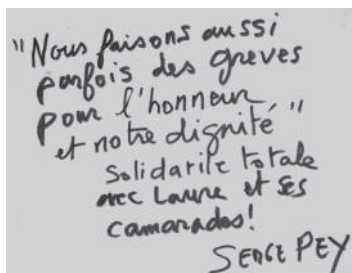 "Nous faisons aussi
parfois des grèves
pour l'honneur
et notre dignité"
Solidarité totale
avec Laure et ses
camarades!
SERGE PEY